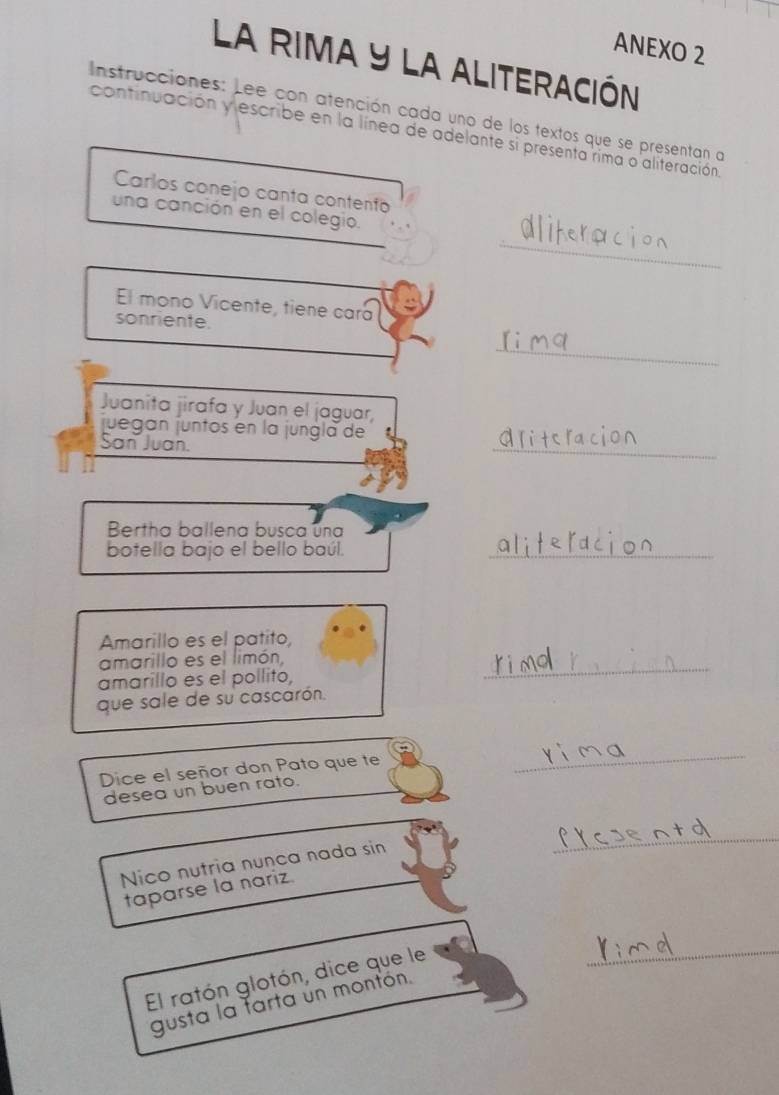 ANEXO 2
LA RIMA Y LA ALITERACIÓN
Instrucciones: Lee con atención cada uno de los textos que se presentan a
continuación y escribe en la línea de adelante si presenta rima o aliteración.
Carlos conejo canta contento
una canción en el colegio.
aliteracion
El mono Vicente, tiene cara
sonriente.
rima
Juanita jirafa y Juan el jaguar,
juegan juntos en la jungla de
San Juan.
ariteracion
Bertha ballena busca una
botella bajo el bello baúl.
aliteracion
Amarillo es el patito,
amarillo es el limón,
amarillo es el pollito,
que sale de su cascarón.
rima
Dice el señor don Pato que te
desea un buen rato.
rima
Nico nutria nunca nada sin
taparse la nariz.
presenta
El ratón glotón, dice que le
gusta la tarta un montón.
rima